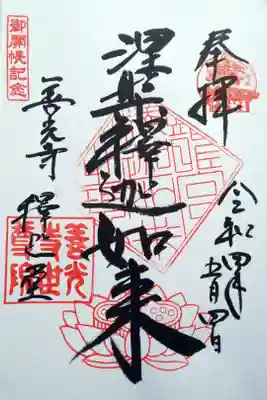 奉拝
令和四年五月四日
涅槃釋迦如来
善光寺
釋迦堂
御開帳記念
善光寺世尊院